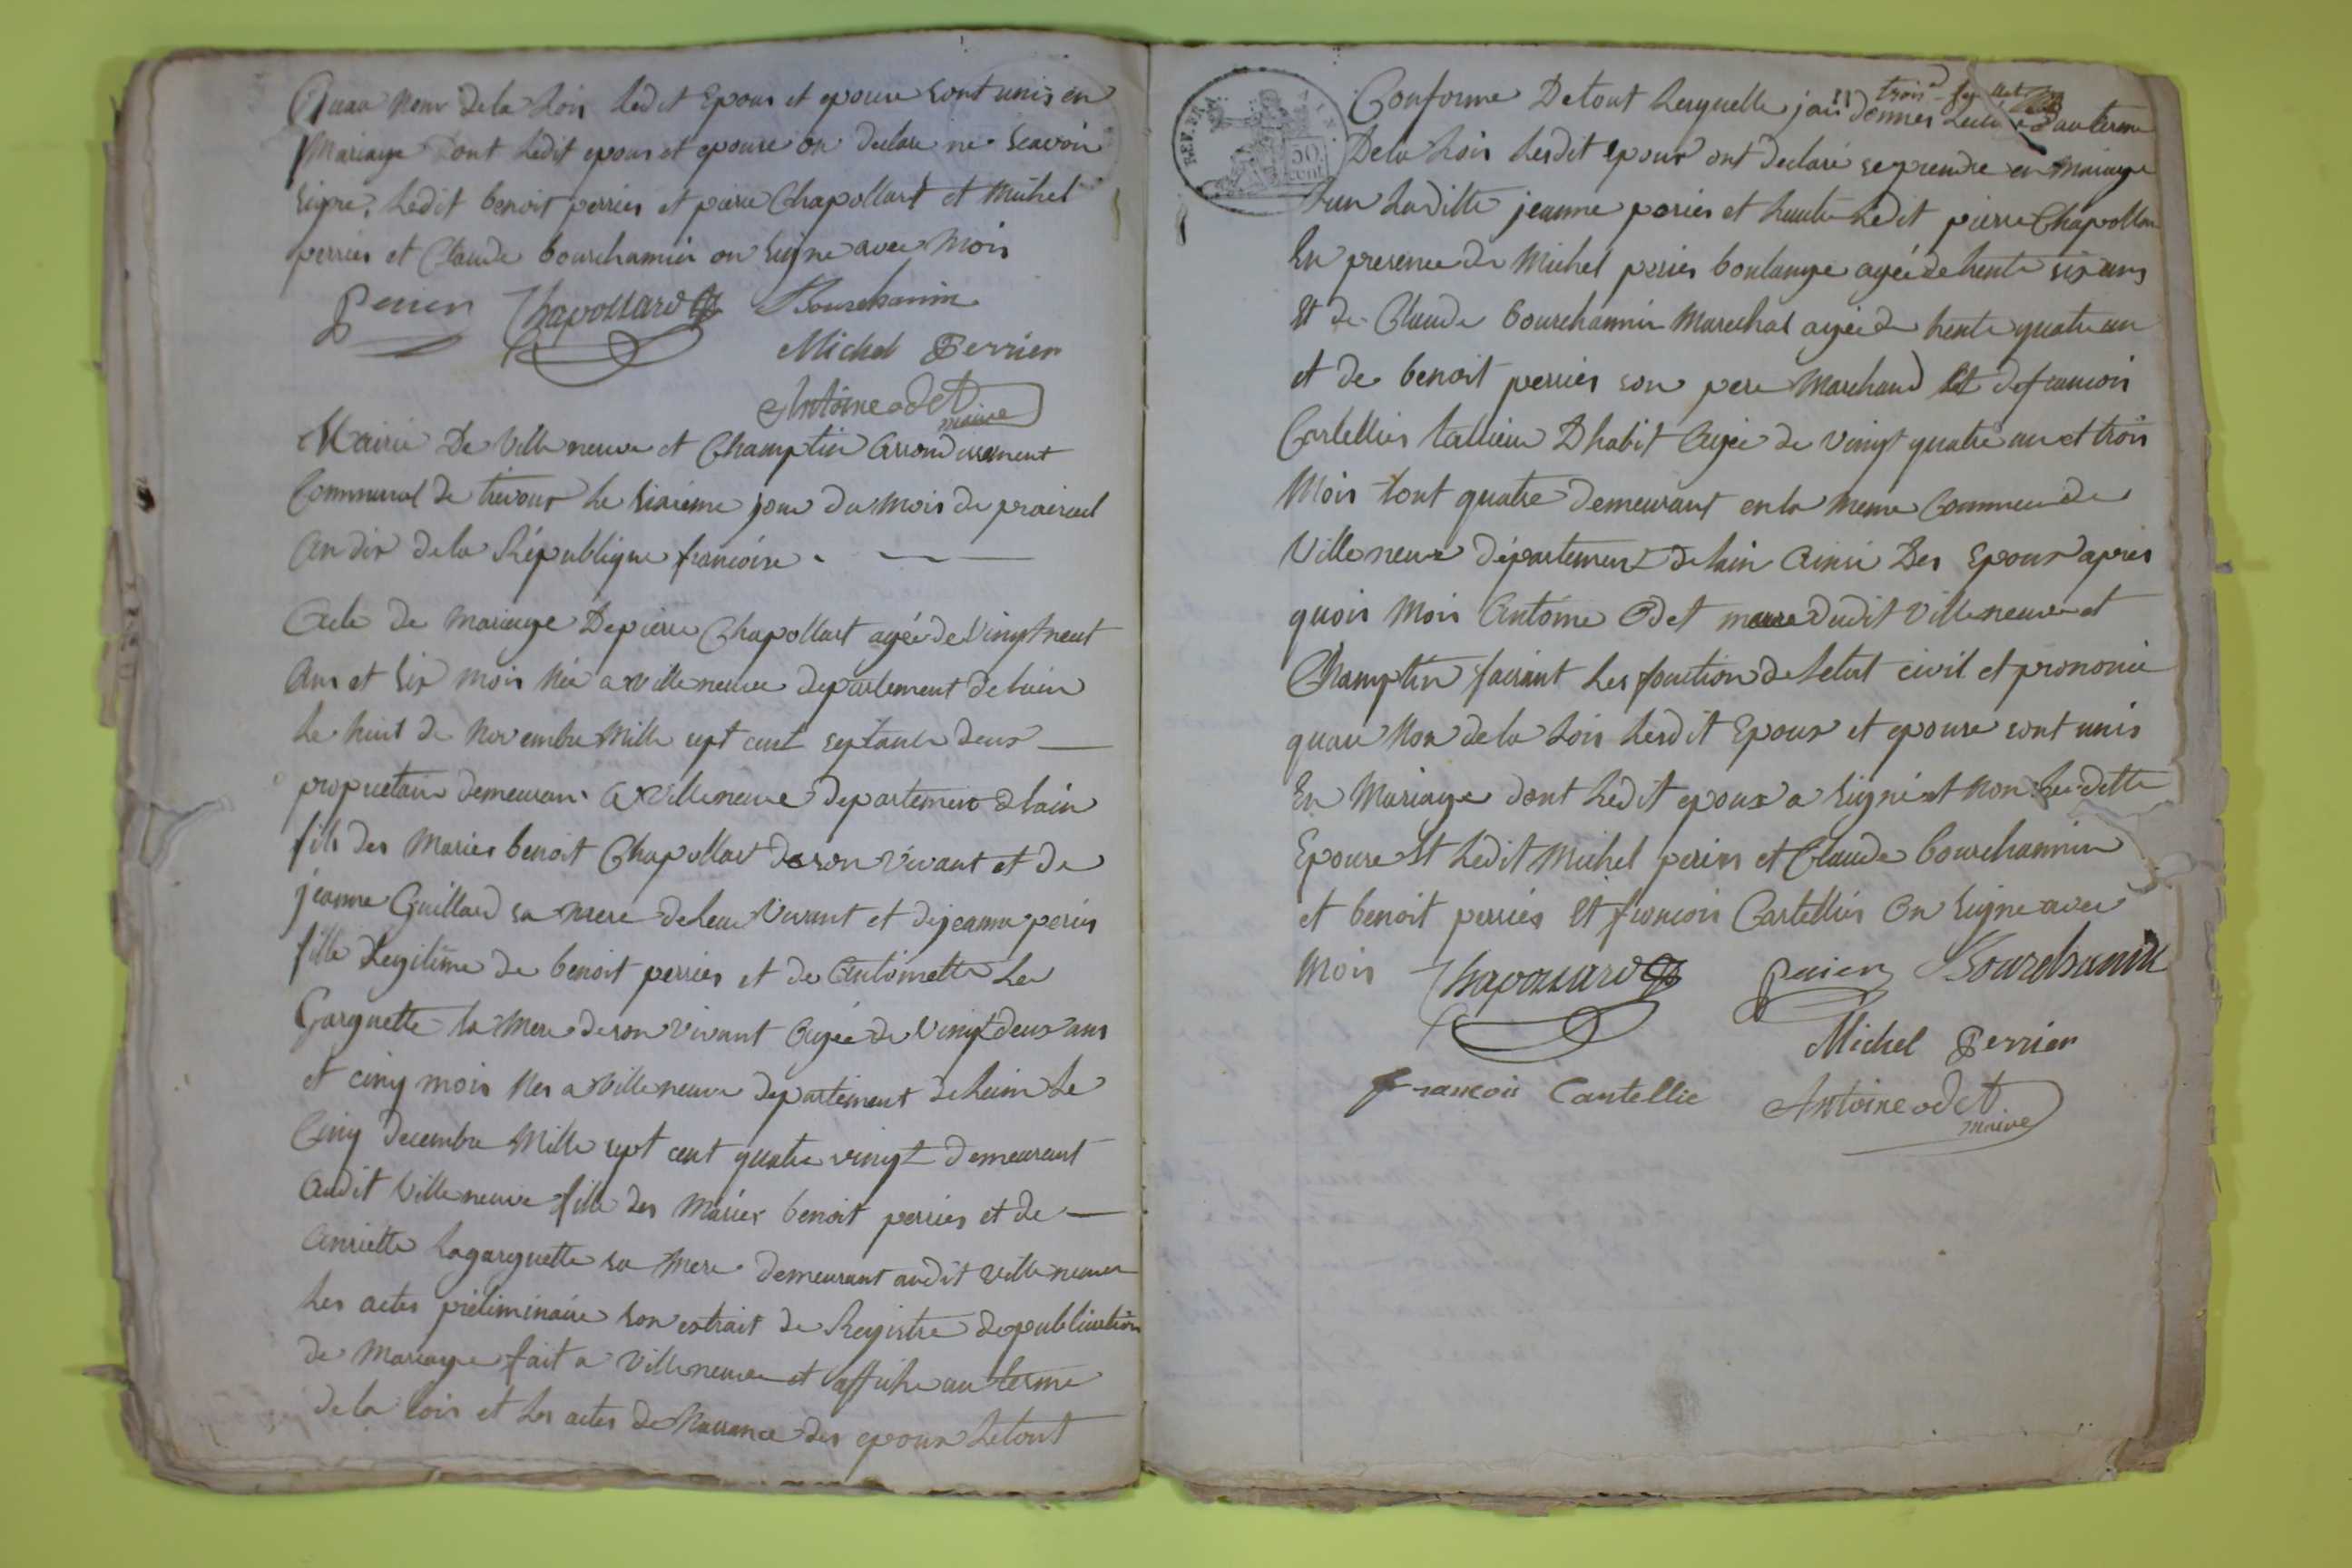 Quau nom de la Lois Ledit Epoux et epouse sont unis en
Mariage dont Ledit epoux et epouse on declare ne scavoir
signe, Ledit benoit perries et pierre Chapollart et Michel
perries et Claude bourchamin on signe avec Mois
perier Chapollard Bourchanin
Michel Perrier
Antoine odet
maire
Mairie De Villeneuve et Champtin Arrondissement
Communal de trevoux Le sixieme jour du Mois de prairial
an dix de la République francóise. —
Acte de Mariage De pierre Chapollart agée de Vingt neuf
Ans et six mois Née a villeneuve departement de lain
Le huit de Novembre Mille sept cent septante deux —
propriétaire demeurant A Villeneuve departement de lain
fils des Maries benoit Chapollart de son Vivant et de
jeanne Guillard sa Mere de leur Vivant et de jeanne peries
fille Legitime de benoit perries et de Antoinette La
Garguette la Mere de son vivant Agée de Vingt deux ans
et cinq mois Nes a Villeneuve departement de Lain Le
Cinq decembre Mille sept cent quatre vingt demeurant
Audit Villeneuve fille des Maries benoit perries et de —
Anriette Lagarguette sa Mere demeurant audit Villeneuve
Les actes préliminaire son extrait de Registre de publication
de Mariage fait a Villeneuve et affiche au terme
de la lois et Les actes de Naissance des epoux Le tout
REP. FRA. AIN.
50 cent.
trois feullet
Conforme De tout Lesquelle jais donnes Lecture au terme
De la Lois Lesdit epoux ont declaré se prendre en Mariage
Lun Laditte jeanne peries et Lautre Ledit pierre Chapollar
En presence de Michel peries boulange agée de trente six ans
Et de Claude bourchamin Marechal agée de trente quatre an
et de benoit perries son pere Marchand Et de francois
Cartellies tallieur Dhabit Agée de Vingt quatre an et trois
Mois tout quatre demeurant en la meme Commune de
Villeneuve département de lain Ainsi Des Epoux apres
quois Mois Antoine Odet maire dudit Villeneuve et
Champtin faisant Les fonction de Letat civil et prononce
quau Nom de la Lois Lesdit Epoux et epouse sont unis
En Mariage dont Ledit epoux a signé et non Laditte
Epouse Et Ledit Michel peries et Claude bourchamin
et benoit perries Et francois Cartellies On signe avec
Mois Chapollard perier Bourchanin
Michel Perrier
francois Cantellie Antoine odet
maire